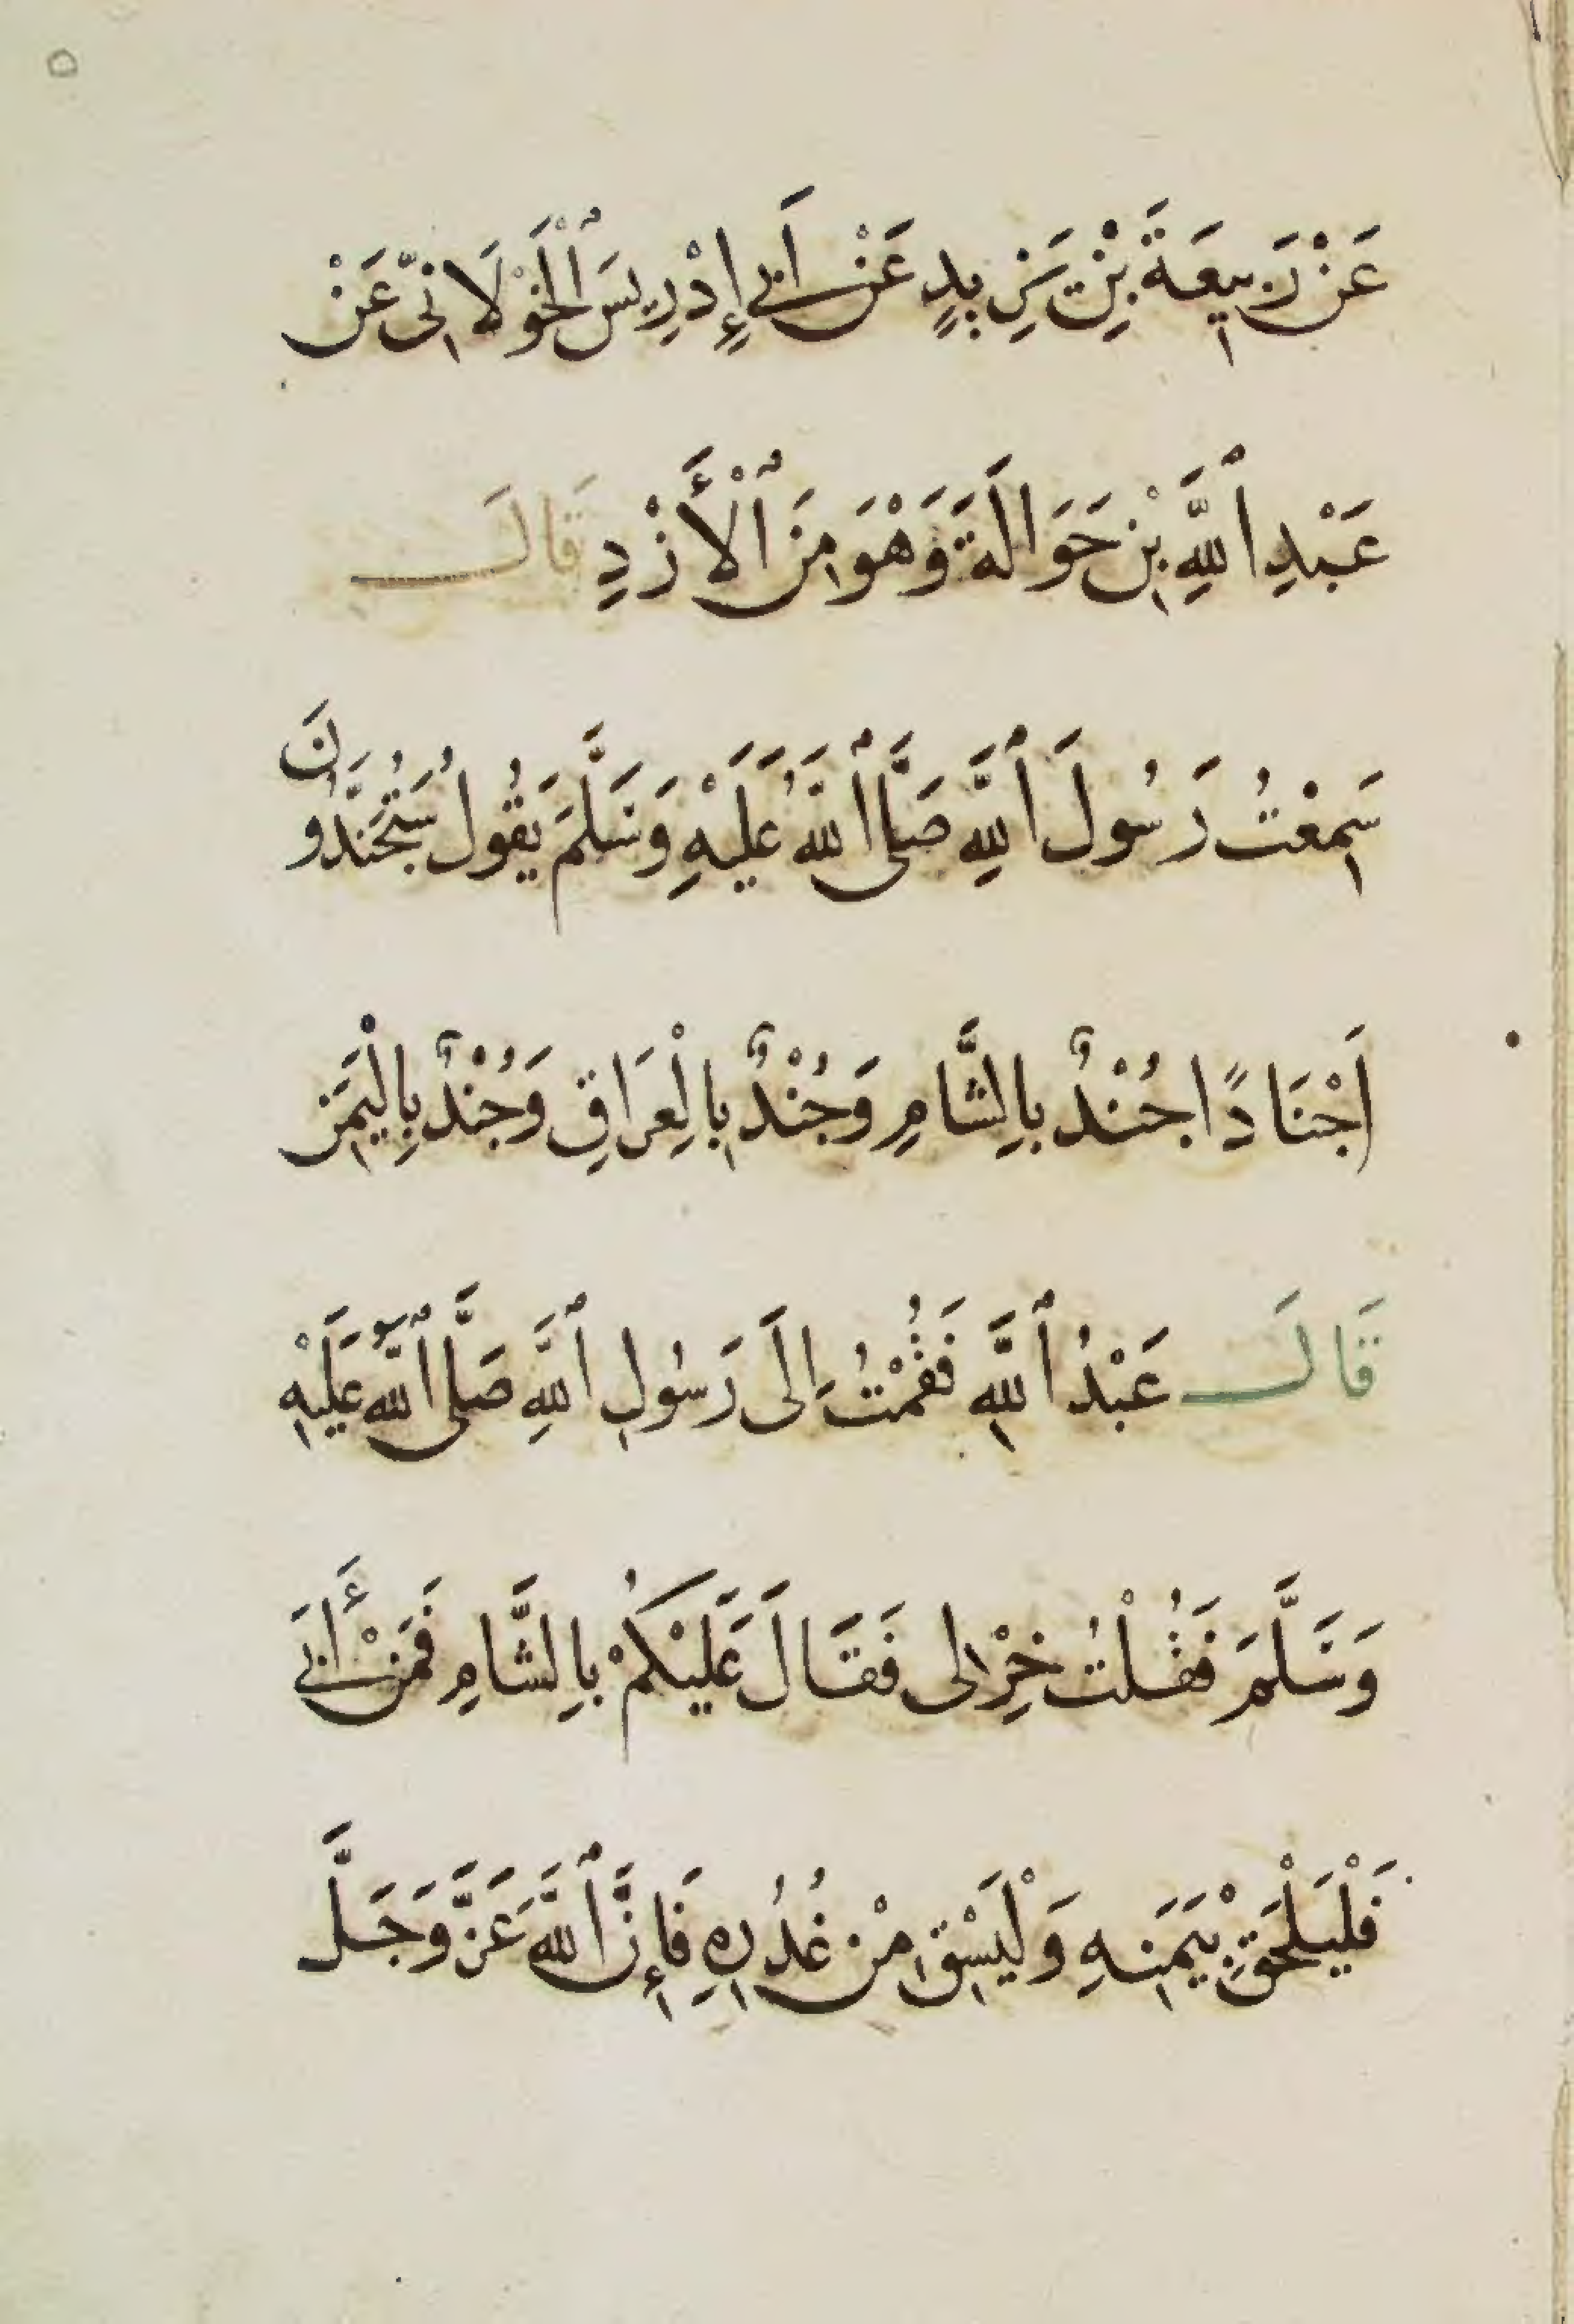 ٥
عَنْ رَبِيعَةَ بْنِ يَزِيدٍ عَنْ أَبِي إِدْرِيسَ ٱلْخَوْلَانِيِّ عَنْ
عَبْدِ ٱللَّهِ بْنِ حَوَالَةَ وَهْوَ مِنَ ٱلْأَزْدِ قَالَ
سَمِعْتُ رَسُولَ ٱللَّهِ صَلَّى ٱللَّهُ عَلَيْهِ وَسَلَّمَ يَقُولُ سَتُجَنَّدُونَ
اَجْنَادًا جُنْدٌ بِالشَّامِ وَجُنْدٌ بِالْعِرَاقِ وَجُنْدٌ بِالْيَمَنِ
قَالَ عَبْدُ ٱللَّهِ فَقُمْتُ إِلَى رَسُولِ ٱللَّهِ صَلَّى ٱللَّهُ عَلَيْهِ
وَسَلَّمَ فَقُلْتُ خِرْ لِى فَقَالَ عَلَيْكُمْ بِالشَّامِ فَمَنْ أَبَى
فَلْيَلْحَقْ بِيَمَنِهِ وَلْيَسْقِ مِنْ غُدُرِهِ فَإِنَّ ٱللَّهَ عَزَّ وَجَلَّ